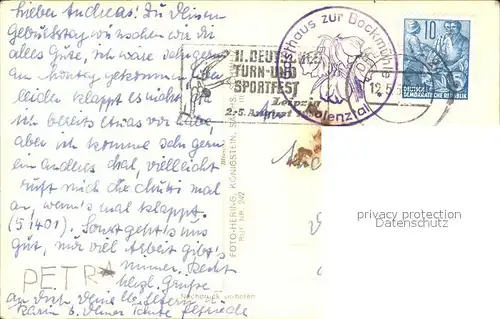 Lieber Andreas! Zu Deinem
Geburtstag wünschen wir Dir
alles Gute, ich wäre sehr gern
am Montag gekommen, aber
leider klappt es nicht
ich bereits etwas vor habe,
aber ich komme sehr gern
ein anderes Mal, vielleicht
ruft mich die mal
an, wenn's mal klappt.
(51401). Sonst geht's uns
gut, nur viel Arbeit gibt's
immer. Recht
herzl. Grüße
an Dich, Deine Eltern u.
Karin v. Deiner Tante
PETRA
II. DEUTSCHES
TURN- UND
SPORTFEST
Leipzig
2.-5. August
Gasthaus zur Bockmühle
Polenztal
12.5.
10
DEUTSCHE
DEMOKRATISCHE REPUBLIK
FOTO-HERING, KÖNIGSTEIN,
RUF NR. 242
Nachdruck verboten
privacy protection
watermark
Datenschutz